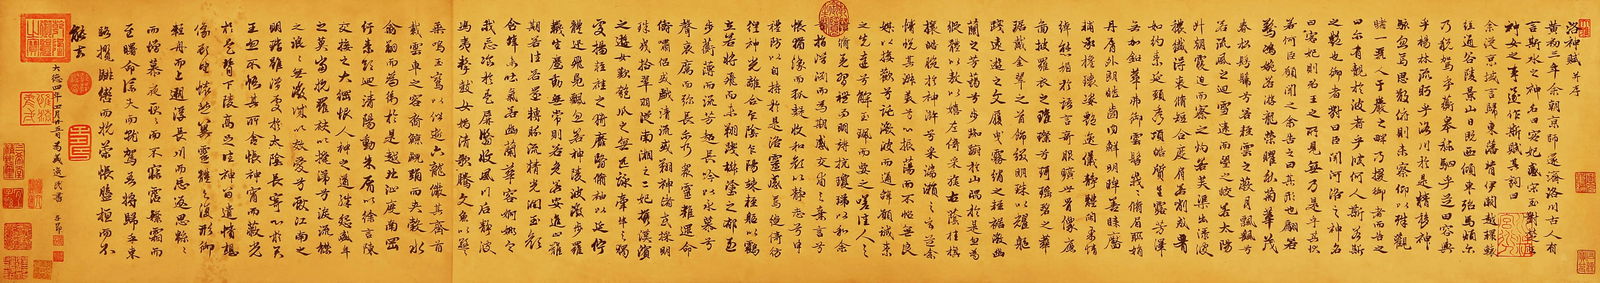 洛神賦并序
黃初三年余朝京師還濟洛川古人有
言斯水之神名曰宓妃感宋玉對楚王
神女之事遂作斯賦其詞曰
余從京域言歸東藩背伊闕越轘轅
經通谷陵景山日既西傾車殆馬煩爾
乃稅駕乎蘅皋秣駟乎芝田容與
乎楊林流眄乎洛川於是精移神
駭忽焉思散俯則未察仰以殊觀
睹一麗人于巖之畔乃援御者而告之
曰爾有覿於彼者乎彼何人斯若此
之豔也御者對曰臣聞河洛之神名
曰宓妃則君王之所見無乃是乎其狀
若何臣願聞之余告之曰其形也翩若
驚鴻婉若遊龍榮曜秋菊華茂
春松髣髴兮若輕雲之蔽月飄颻兮
若流風之迴雪遠而望之皎若太陽
升朝霞迫而察之灼若芙蕖出淥波
穠纖得衷脩短合度肩若削成要
如約素延頸秀項皓質呈露芳澤
無加鉛華弗御雲髻峩峩脩眉聯娟
丹脣外朗皓齒內鮮明眸善睞靨
輔承權瓌姿豔逸儀靜體閑柔情
綽態媚於語言奇服曠世骨像應
圖披羅衣之璀璨兮珥瑤碧之華
琚戴金翠之首飾綴明珠以耀軀
踐遠遊之文履曳霧綃之輕裾微幽
蘭之芳藹兮步踟躕於山隅於是忽焉
縱體以遨以嬉左倚采旄右蔭桂旗
攘皓腕於神滸兮采湍瀨之玄芝余
情悅其淑美兮心振蕩而不怡無良
媒以接歡兮託微波而通辭願誠素
之先達兮解玉珮而要之嗟佳人之
信脩羌習禮而明詩抗瓊珶以和余
兮指潛淵而為期感交甫之棄言兮
悵猶豫而狐疑收和顏以靜志兮申
禮防以自持於是洛靈感焉徙倚彷
徨神光離合乍陰乍陽竦輕軀以鶴
立若將飛而未翔踐椒塗之郁烈
步蘅薄而流芳超長吟以永慕兮
聲哀厲而彌長爾乃眾靈雜遝命
儔嘯侶或戲清流或翔神渚或採明
珠或拾翠羽從南湘之二妃攜漢濱
之遊女歎匏瓜之無匹詠牽牛之獨
處揚輕袿之猗靡翳脩袖以延佇
體迅飛鳧飄忽若神陵波微步羅
襪生塵動無常則若危若安進止難
期若往若還轉眄流精光潤玉顏
含辭未吐氣若幽蘭華容婀娜令
我忘飡於是屏翳收風川后靜波
馮夷擊鼓女媧清歌騰文魚以警
乘鳴玉鸞以偕逝六龍儼其齊首
載雲車之容裔鯨鯢踊而夾轂水
禽翔而為衛於是越北沚度南岡
紆素領迴清陽動朱脣以徐言陳
交接之大綱恨人神之道殊怨盛年
之莫當抗羅袂以掩涕兮淚流襟
之浪浪悼良會之永絕兮哀一逝而異鄉
無微情以效愛兮獻江南之
明璫雖潛處於太陰長寄心於君
王忽不悟其所舍悵神宵而蔽光
於是背下陵高足往神留遺情想
像顧望懷愁冀靈體之復形御
輕舟而上遡浮長川而忘返思緜緜
而增慕夜耿耿而不寐霑繁霜而
至曙命僕夫而就駕吾將歸乎東
路攬騑轡而抗策悵盤桓而不
能去
大德四年四月廿五日為盛逸民書 子昂